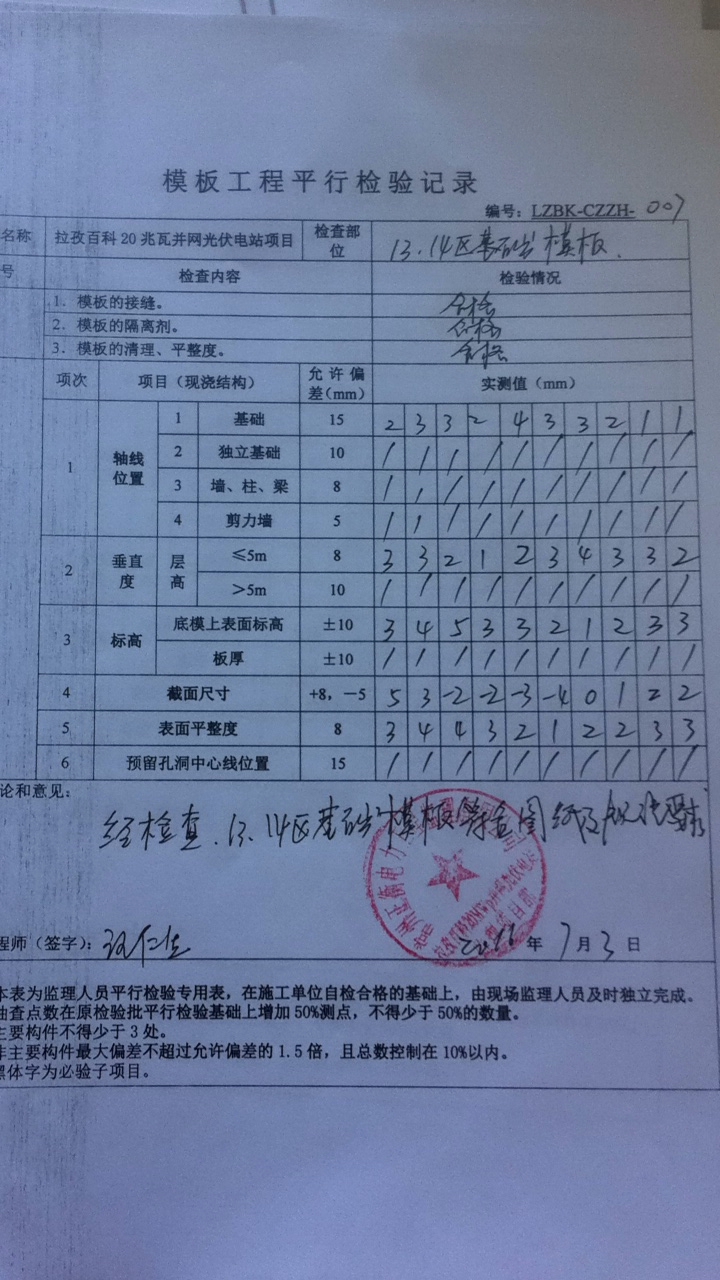 模板工程平行检验记录
编号：LZBK-CZZH- 007
名称 拉孜百科20兆瓦并网光伏电站项目 检查部位 13.14区基础模板.
号 检查内容 检验情况
1．模板的接缝。 合格
2．模板的隔离剂。 合格
3．模板的清理、平整度。 合格
项次 项目（现浇结构） 允许偏差(mm) 实测值（mm）
1 轴线位置 1 基础 15 2 3 3 2 4 3 3 2 1 1
2 独立基础 10 / / / / / / / / / /
3 墙、柱、梁 8 / / / / / / / / / /
4 剪力墙 5 / / / / / / / / / /
2 垂直度 层高 ≤5m 8 3 3 2 1 2 3 4 3 3 2
＞5m 10 / / / / / / / / / /
3 标高 底模上表面标高 ±10 3 4 5 3 3 2 1 2 3 3
板厚 ±10 / / / / / / / / / /
4 截面尺寸 +8，－5 5 3 -2 -2 -3 -4 0 1 2 2
5 表面平整度 8 3 4 4 3 2 1 2 2 3 3
6 预留孔洞中心线位置 15 / / / / / / / / / /
论和意见：
经检查.13.14区基础模板符合图纸及规范要求
程师（签字）： 年 7 月 3 日
本表为监理人员平行检验专用表，在施工单位自检合格的基础上，由现场监理人员及时独立完成。
抽查点数在原检验批平行检验基础上增加50%测点，不得少于50%的数量。
主要构件不得少于3处。
非主要构件最大偏差不超过允许偏差的1.5倍，且总数控制在10%以内。
黑体字为必验子项目。